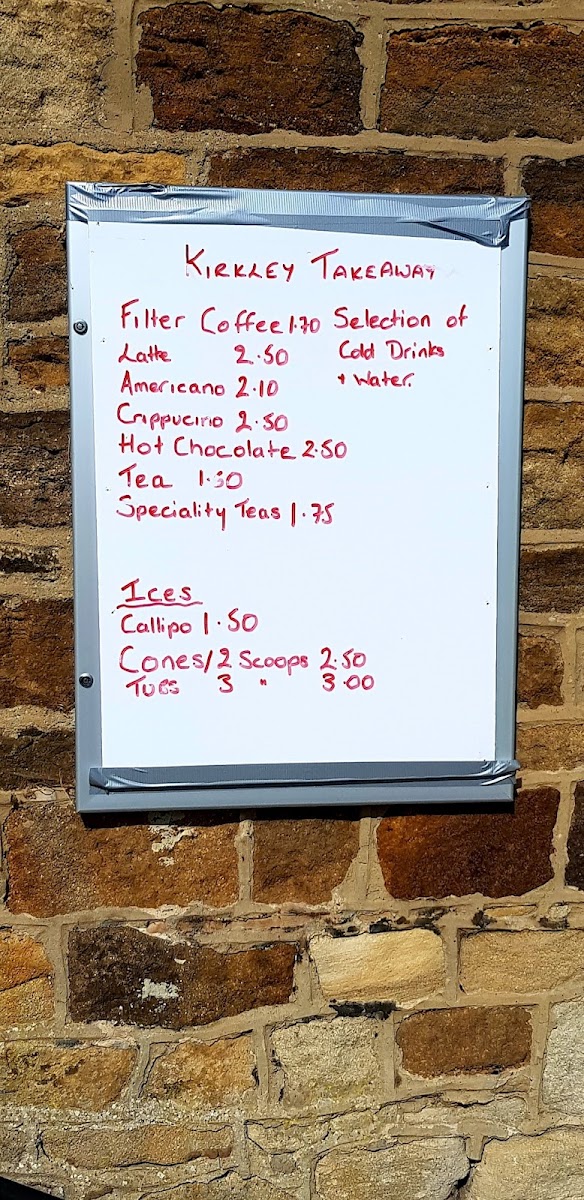 KIRKLEY TAKEAWAY
Filter Coffee 1.70
Latte 2.50
Americano 2.10
Cappucino 2.50
Hot Chocolate 2.50
Tea
Speciality Teas 1.75
Selection of
Cold Drinks
+ Water.
Ices
Callipo 1.50
Cones/2 Scoops 2.50
Tubs 3 " 3.00